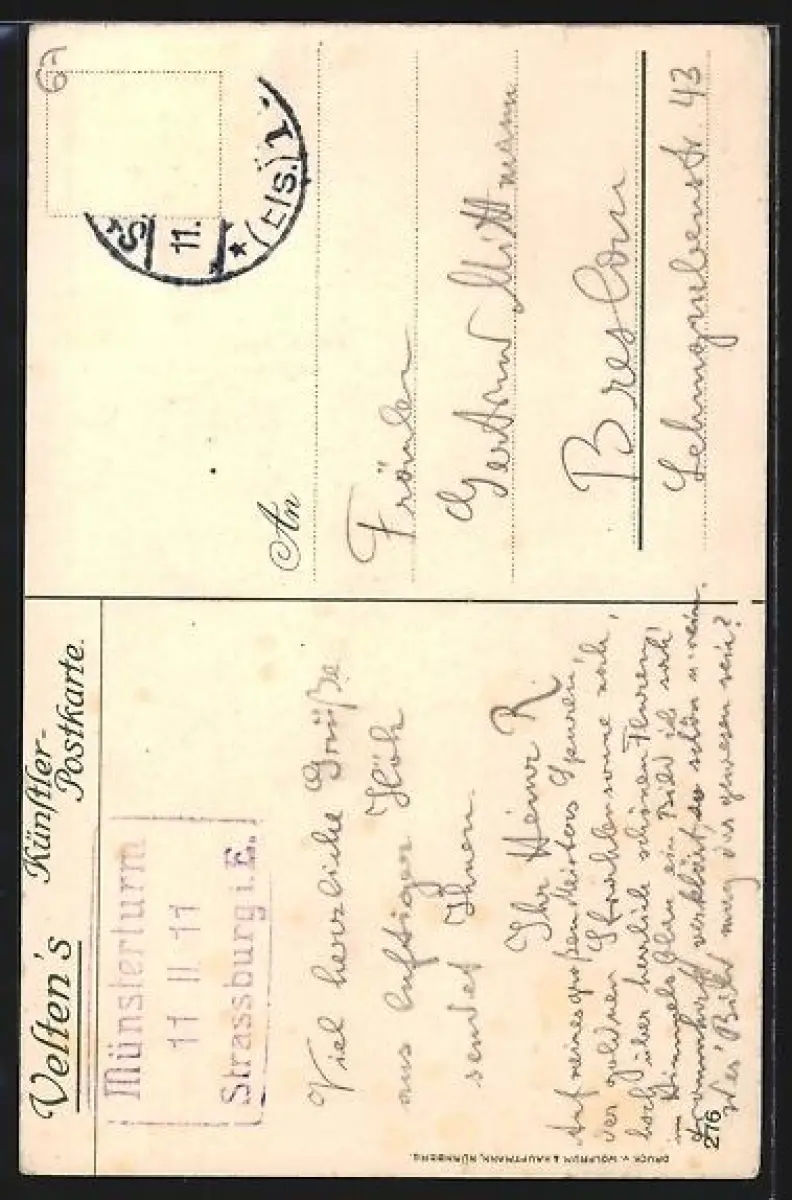 Velten's Künstler-
Postkarte.
Münsterturm
11 III 11
Strassburg i. E.
Viel herzliche Grüße
aus luftiger Höh
sendet Ihnen
Ihr Heinr R.
Auf meines großen Meisters Spuren,
der goldnen Strahlensonne nah,
hoch über herrlich schönen Fluren
im Himmels ein Bild ich sah
traumhaft verklärt, so schön u. rein.
Wes' Bild mag das gewesen sein?
216
DRUCK V. WOLFRUM & HAUPTMANN, NÜRNBERG.
67
S
11.
* (Els.) 1.
An
Fräulein
Gertrud Mittmann
Breslau
Lehmgrubenstr. 43